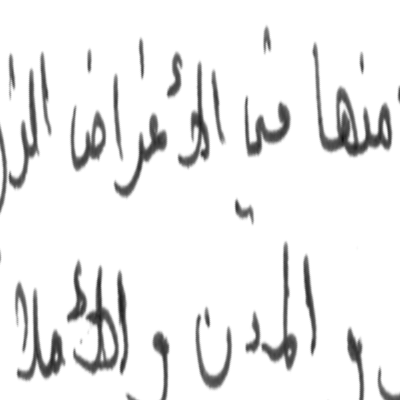 منها في الأغراض الز
و المدن و الأملا